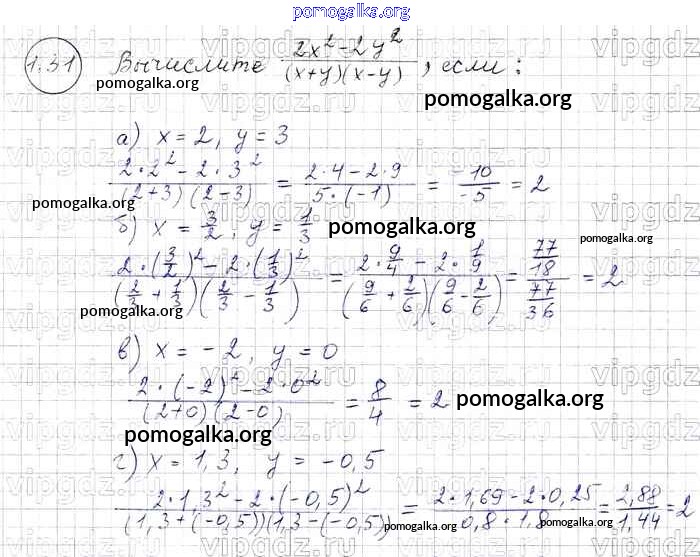 pomogalka.org
1.31 Вычислите (2x² - 2y²)/((x+y)(x-y)), если:
pomogalka.org
pomogalka.org
а) x = 2, y = 3
(2·2² - 2·3²)/((2+3)(2-3)) = (2·4 - 2·9)/(5·(-1)) = -10/-5 = 2
pomogalka.org
б) x = 3/2, y = 1/3
pomogalka.org
pomogalka.org
(2·(3/2)² - 2·(1/3)²)/((2/3 + 1/3)(2/3 - 1/3)) = (2·9/4 - 2·1/9)/((9/6 + 2/6)(9/6 - 2/6)) = (77/18)/(77/36) = 2
pomogalka.org
pomogalka.org
в) x = -2, y = 0
(2·(-2)² - 2·0²)/((2+0)(2-0)) = 8/4 = 2
pomogalka.org
pomogalka.org
г) x = 1,3, y = -0,5
pomogalka.org
(2·1,3² - 2·(-0,5)²)/((1,3+(-0,5))(1,3-(-0,5))) = (2·1,69 - 2·0,25)/(0,8·1,8) = 2,88/1,44 = 2
pomogalka.org
pomogalka.org
vipgdz.ru